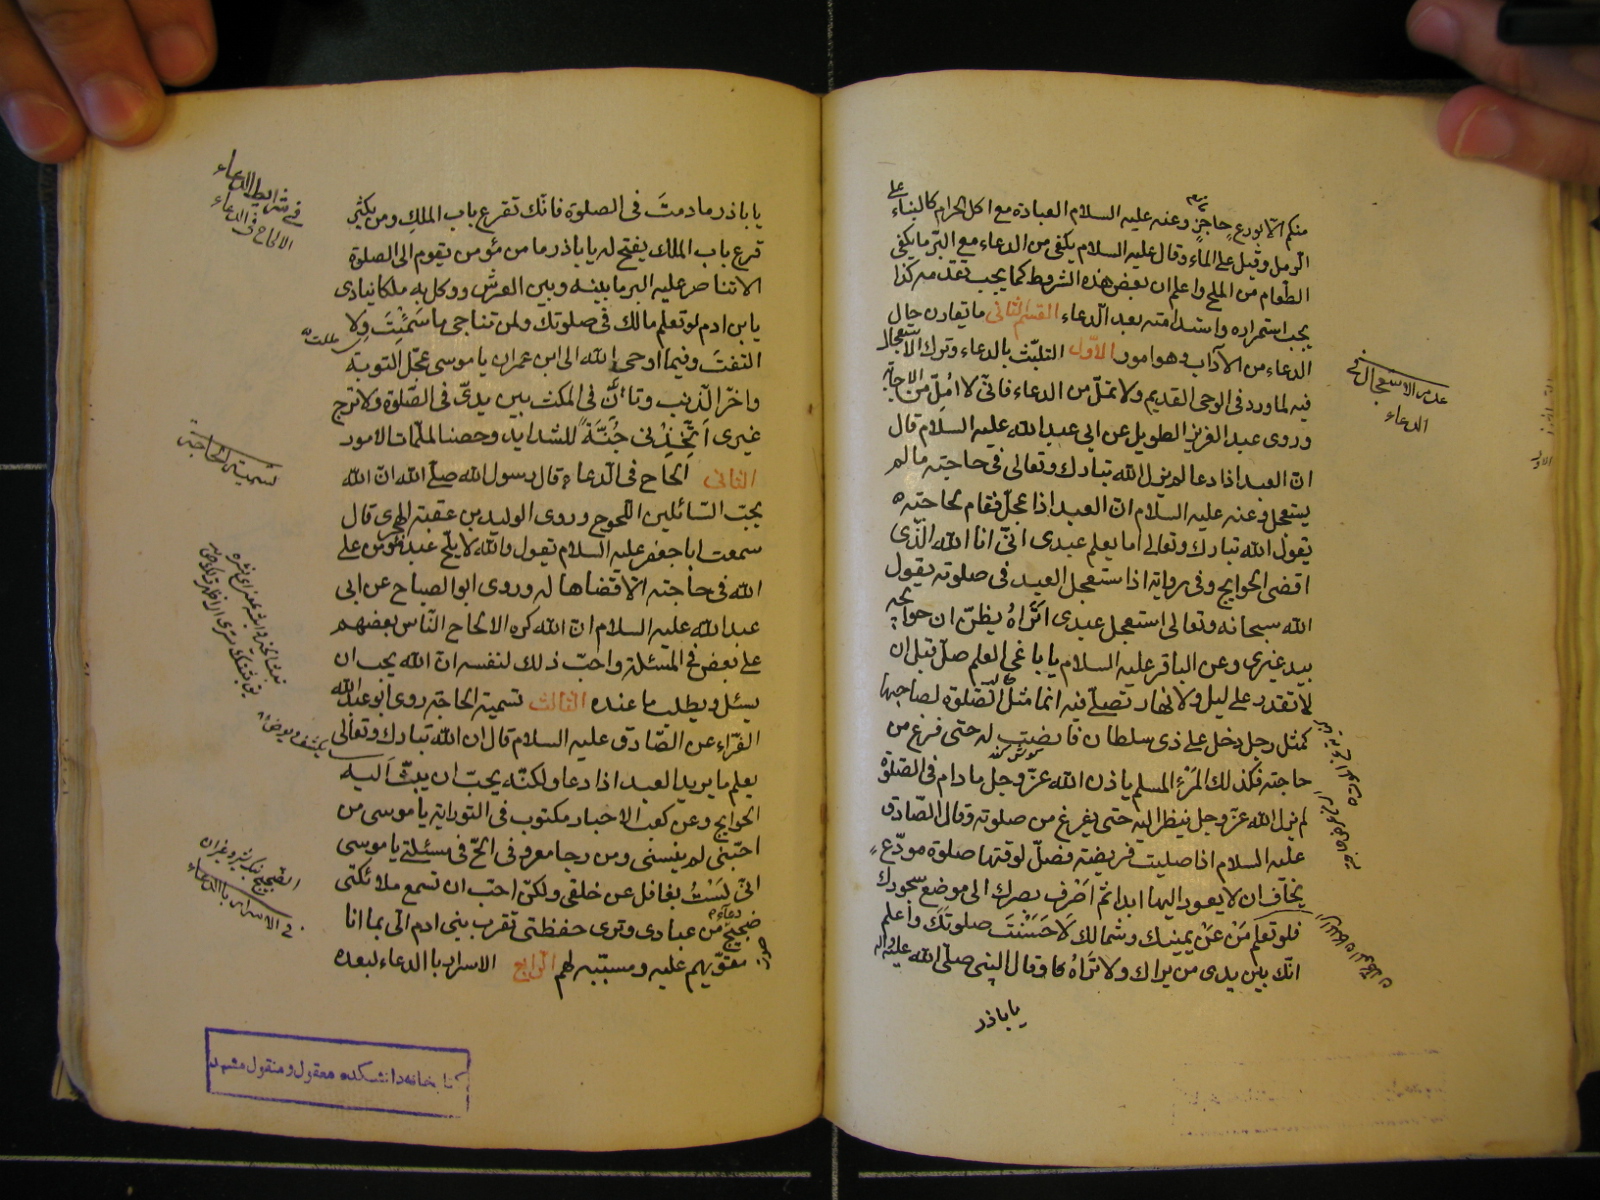 منكم الا بورع حاجز وعنه عليه السلام العبادة مع اكل الحرام كالبناء على
الرمل وقيل على الماء وقال عليه السلام يكفى من الدعاء مع البرّ ما يكفى
الطعام من الملح واعلم ان بعض هذه الشروط كما يجب تقدمه كذا
يجب استمراره واستدامته بعد الدعاء القسم الثانى ما يقارن حال
الدعاء من الآداب وهو امور الأوّل التلبّث بالدعاء وترك الاستعجال
فيه لما ورد فى الوحى القديم ولا تملّ من الدعاء فانّى لا املّ من الاجابة
وروى عبد العزيز الطويل عن ابى عبد الله عليه السلام قال
انّ العبد اذا دعا لم يزل الله تبارك وتعالى فى حاجته ما لم
يستعجل وعنه عليه السلام انّ العبد اذا عجّل فقام لحاجته
يقول الله تبارك وتعالى اما يعلم عبدى انّى انا الله الّذى
اقضى الحوايج وفى رواية اذا استعجل العبد فى صلوته يقول
الله سبحانه وتعالى استعجل عبدى اتراه يظنّ ان حوايجه
بيد غيرى وعن الباقر عليه السلام يا باغى العلم صلّ قبل ان
لا تقدر على ليل ولا نهار تصلّى فيه انما مثل الصّلوة لصاحبها
كمثل رجل دخل على ذى سلطان فانصت له حتى فرغ من
حاجته فكذلك المرء المسلم باذن الله عزّ وجل ما دام فى الصّلوة
لم يزل الله عزّ وجل ينظر اليه حتى يفرغ من صلوته وقال الصّادق
عليه السلام اذا صليت فريضة فصلّ لوقتها صلوة مودّع
يخاف ان لا يعود اليها ابدا ثم اصرف بصرك الى موضع سجودك
فلو تعلم من عن يمينك وشمالك لاحسنت صلوتك واعلم
انّك بين يدى من يراك ولا تراه وقال النبى صلّى الله عليه واله
يا باذر
عدم الاستعجال فى
الدعاء
يا باذر ما دمت فى الصلوة فانّك تقرع باب الملك ومن يكثر
قرع باب الملك يفتح له يا باذر ما من مؤمن يقوم الى الصلوة
الا تناصر عليه البر ما بينه وبين العرش ووكل به ملكا ينادى
يا بن ادم لو تعلم مالك فى صلوتك ولمن تناجى ما سئمت ولا
التفت وفيما اوحى الله الى ابن عمران يا موسى عجّل التوبة
واخّر الذنب وتأنّ فى المكث بين يدىّ فى الصّلوة ولا ترج
غيرى اتّخذنى جُنّة للشدايد وحصنا لملمّات الامور
الثانى الحاح فى الدعاء قال رسول الله صلّى الله انّ الله
يحبّ السّائلين اللحوح وروى الوليد بن عقبة الهجرى قال
سمعت ابا جعفر عليه السلام يقول والله لا يلحّ عبد مؤمن على
الله فى حاجته الا قضاها له وروى ابو الصباح عن ابى
عبد الله عليه السلام انّ الله كره الالحاح النّاس بعضهم
على بعض فى المسئلة واحبّ ذلك لنفسه انّ الله يحب ان
يسئل ويطلب ما عنده الثالث تسمية الحاجة روى ابو عبد الله
الفرّاء عن الصّادق عليه السلام قال ان الله تبارك وتعالى
يعلم ما يريد العبد اذا دعا ولكنّه يحبّ ان يبثّ اليه
الحوايج وعن كعب الاحبار مكتوب فى التوراية يا موسى من
احبّنى لم ينسنى ومن رجا معروفى الحّ فى مسئلتى يا موسى
انّى لست بغافل عن خلقى ولكن احبّ ان تسمع ملائكتى
ضجيج دعاء من عبادى وترى حفظتى تقرب بنى ادم الىّ بما انا
مقوّيهم عليه ومسبّبه لهم الرّابع الاسرار با الدعاء لبعده
فى شرايط الدعاء
الالحاح فى الدعاء
تسمية الحاجة
فى الاسرار با الدعاء
كتابخانه دانشكده معقول و منقول مشهد